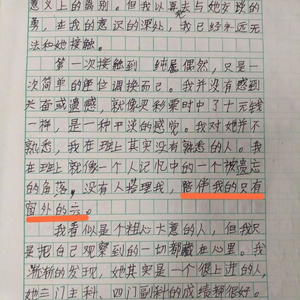 意义上的离别。但我以再去与她交谈的
勇，在我的意识的深处，我已经永远无
法和她接触。
第一次接触到 纯属偶然，只是一
次简单的座位调换而已。我并没有感到
兴奋或遗憾，就像买彩票时中了十元钱
一样，是一种平淡的感觉。我对她并不
熟悉，我在班上其实没有熟悉的人。我
在班上就像一个人记忆中的一个被遗忘
的角落，没有人答理我，陪伴我的只有
窗外的云。
我看似是个粗心大意的人，但我只
是把自己观察到的一切都藏在心里。我
渐渐的发现，她其实是一个很上进的人，
她三门主科、四门副科的成绩都很好。